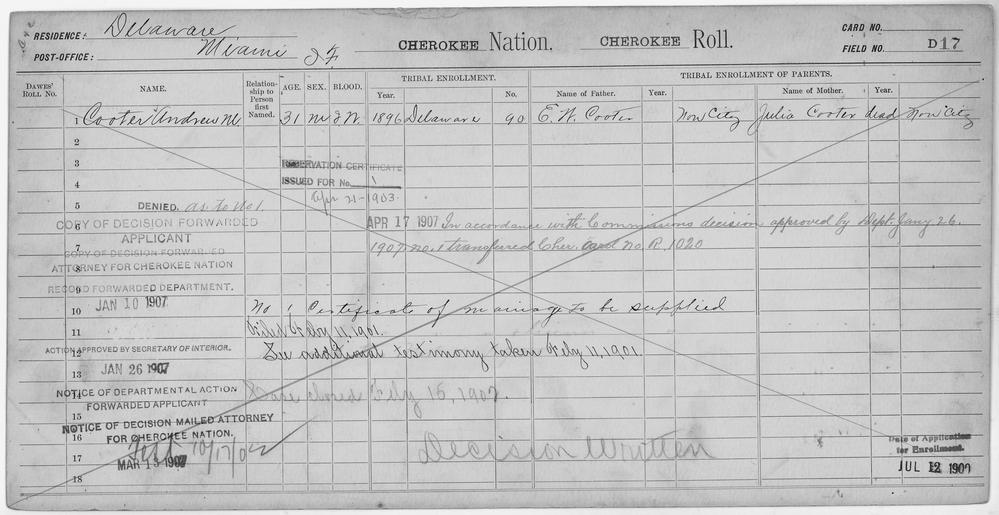 RESIDENCE: Delaware
POST-OFFICE: Miami I.T.
CHEROKEE Nation. CHEROKEE Roll.
CARD NO.
FIELD NO. D17
DAWES' ROLL NO. NAME. Relationship to Person first Named. AGE. SEX. BLOOD. TRIBAL ENROLLMENT. Year. No. TRIBAL ENROLLMENT OF PARENTS. Name of Father. Year. Name of Mother. Year.
1 Cooter Andrew M. 31 M I.W. 1896 Delaware 90 E. W. Cooter Non City Julia Cooter dead Non City
2
3 RESERVATION CERTIFICATE
4 ISSUED FOR No. 1
Apr 21-1903.
5 DENIED. as to No 1.
6 COPY OF DECISION FORWARDED APR 17 1907 In accordance with Commissions decision approved by Dept. Jany 26.
APPLICANT
7 1907 no. 1 transferred Cher. card no. R. 1020
COPY OF DECISION FORWARDED
8 ATTORNEY FOR CHEROKEE NATION
9 RECORD FORWARDED DEPARTMENT.
JAN 10 1907
10 No 1 Certificate of marriage to be supplied
11 Filed Feby 11, 1901.
12 ACTION APPROVED BY SECRETARY OF INTERIOR. See additional testimony taken Feby 11, 1901
13 JAN 26 1907
14 NOTICE OF DEPARTMENTAL ACTION Case closed Feby 15, 1902.
FORWARDED APPLICANT
15
NOTICE OF DECISION MAILED ATTORNEY
16 FOR CHEROKEE NATION. Decision Written
17 10/17/02
MAR 13 1907
18
Date of Application
for Enrollment.
JUL 12 1900